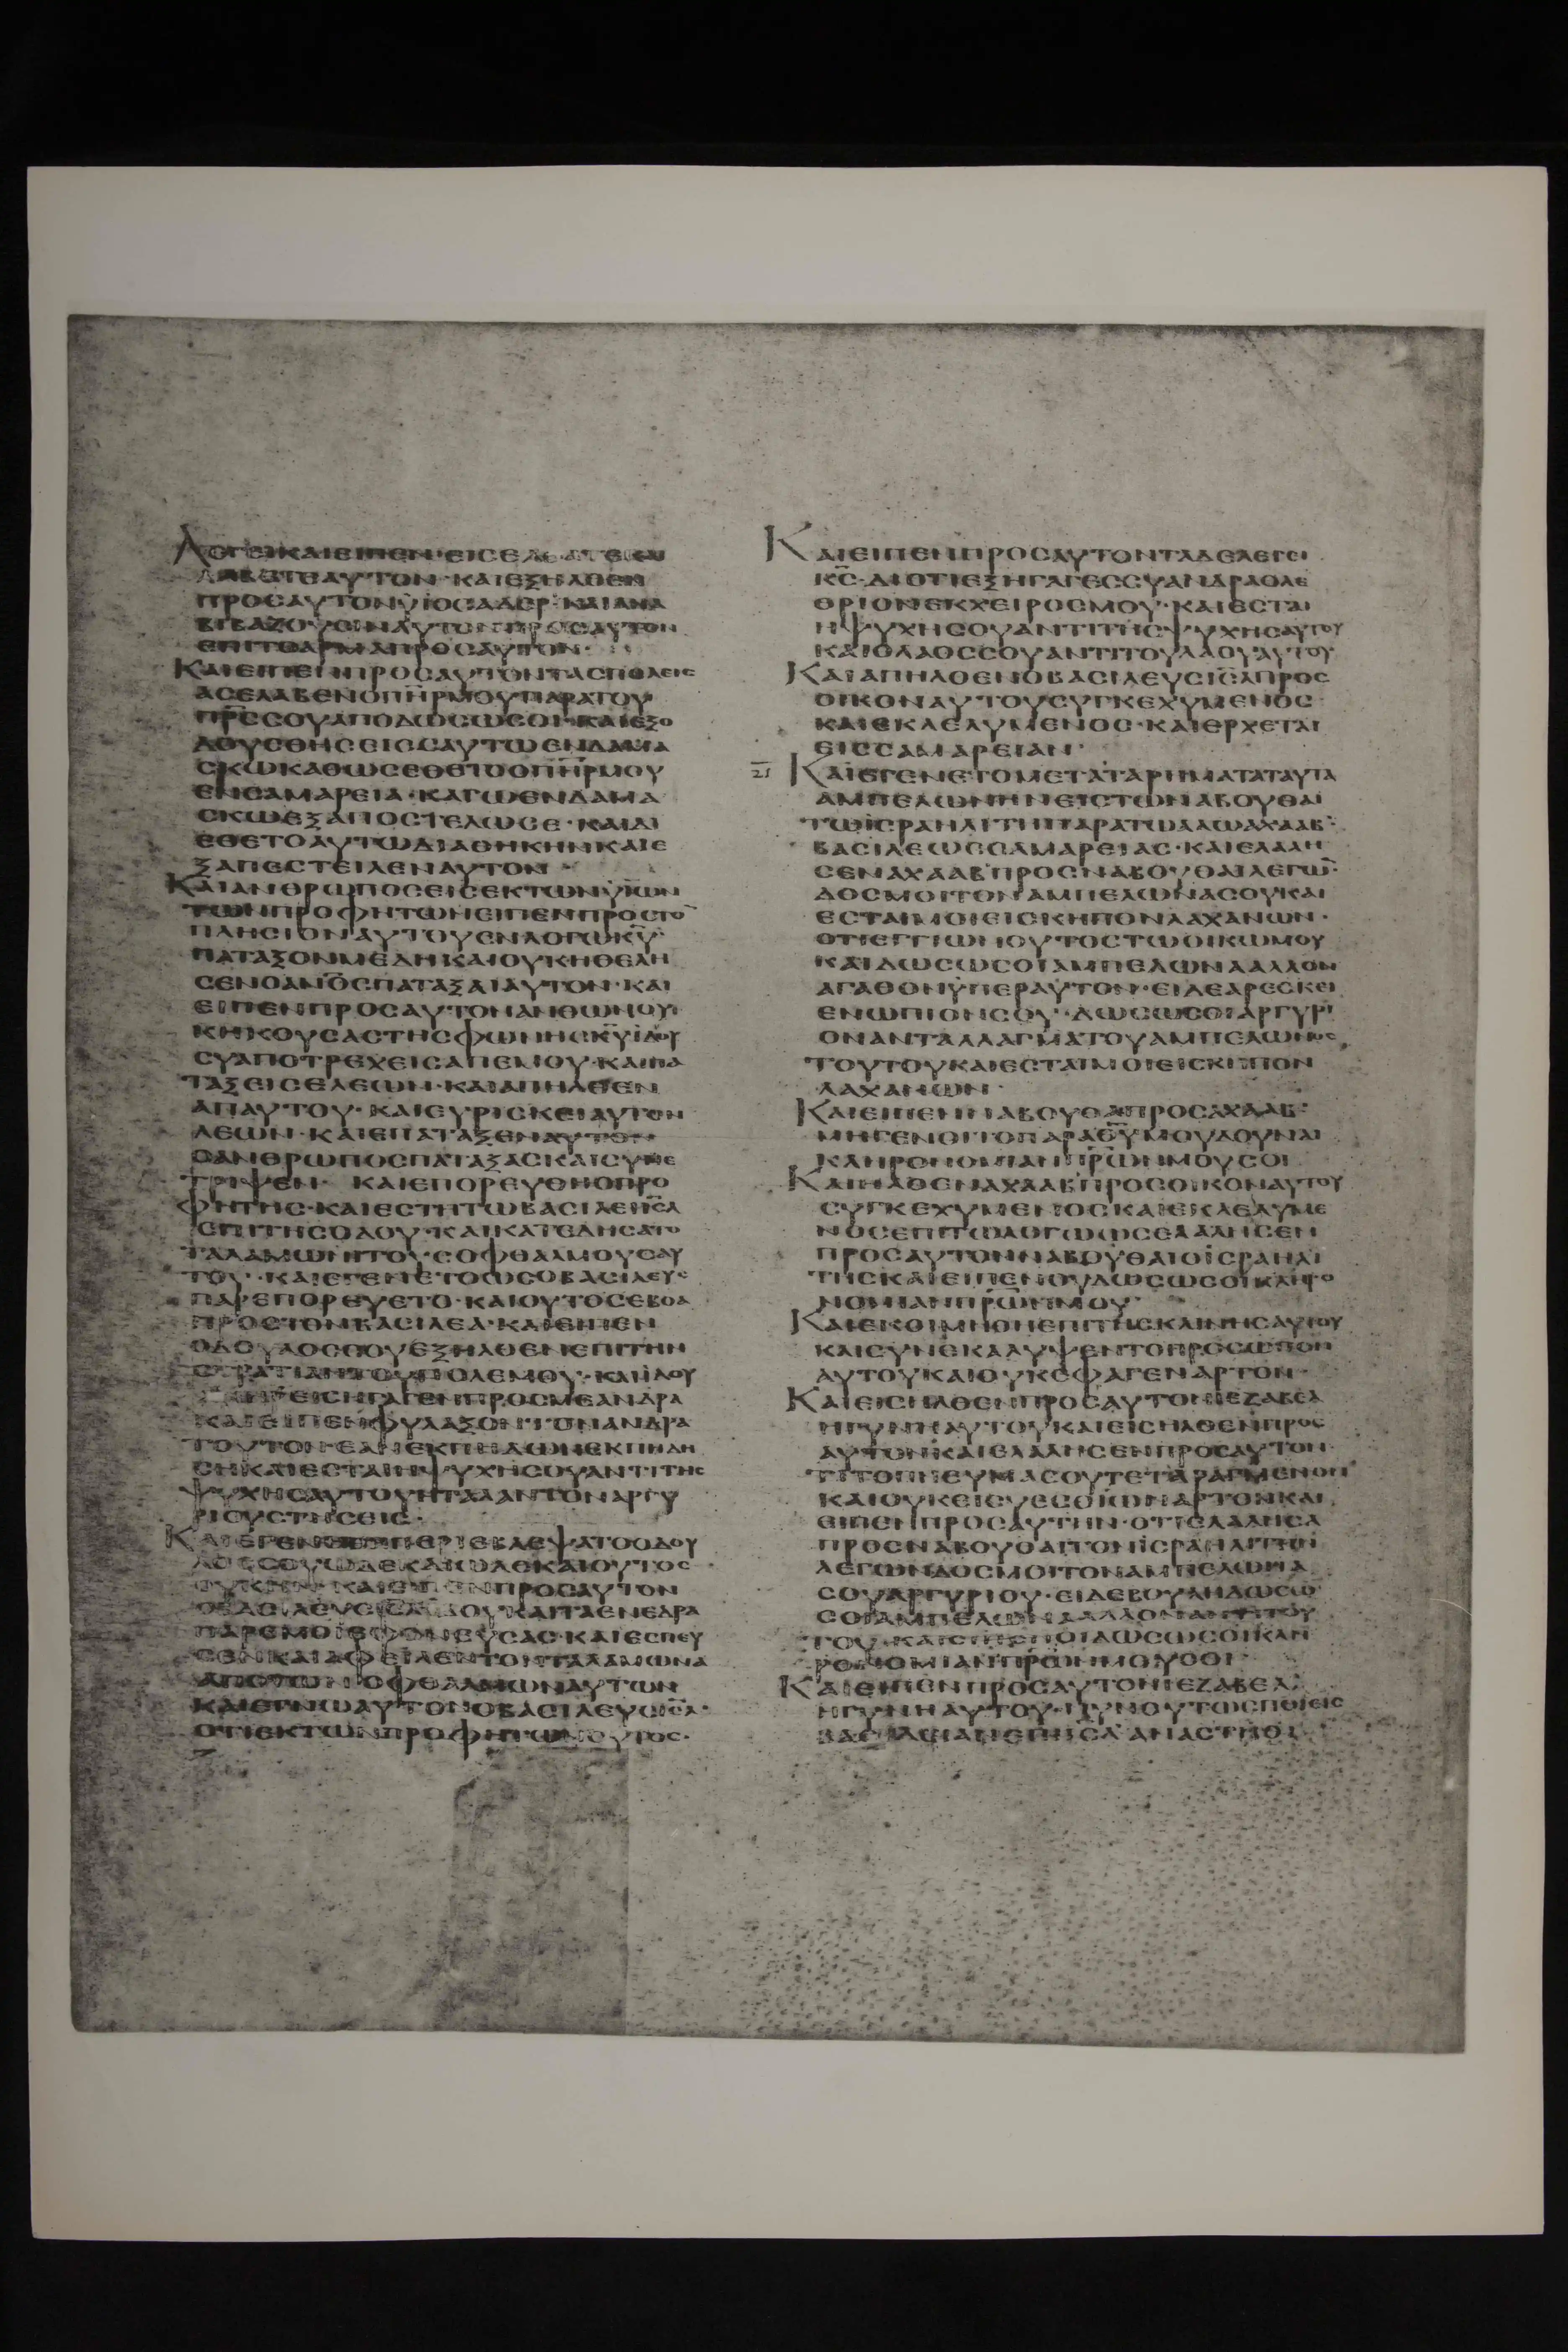 ΛΟΓΕΙΚΑΙΕΙΠΕΝ·ΕΙΣΕΛ
ΛΑΒΕΤΕΑΥΤΟΝ·ΚΑΙΕΞΗΛΘΕΝ
ΠΡΟΣΑΥΤΟΝΫΙΟΣΑΔΕΡ·ΚΑΙΑΝΑ
ΒΙΒΑΖΟΥΣΙΝΑΥΤΟΝΠΡΟΣΑΥΤΟΝ
ΕΠΙΤΟΑΡΜΑΠΡΟΣΑΥΤΟΝ·
ΚΑΙΕΙΠΕΝΠΡΟΣΑΥΤΟΝΤΑΣΠΟΛΕΙΣ
ΑΣΕΛΑΒΕΝΟΠΗΡΜΟΥΠΑΡΑΤΟΥ
ΠΡΣΣΟΥΑΠΟΔΩΣΩΣΟΙ·ΚΑΙΕΞΟ
ΔΟΥΣΘΗΣΕΙΣΣΑΥΤΩΕΝΔΑΜΑ
ΣΚΩΚΑΘΩΣΕΘΕΤΟΟΠΗΡΜΟΥ
ΕΝΣΑΜΑΡΕΙΑ·ΚΑΓΩΕΝΔΑΜΑ
ΣΚΩΕΞΑΠΟΣΤΕΛΩΣΕ·ΚΑΙΔΙ
ΕΘΕΤΟΑΥΤΩΔΙΑΘΗΚΗΝΚΑΙΕ
ΞΑΠΕΣΤΕΙΛΕΝΑΥΤΟΝ
ΚΑΙΑΝΘΡΩΠΟΣΕΙΣΕΚΤΩΝΫΙΩΝ
ΤΩΝΠΡΟΦΗΤΩΝΕΙΠΕΝΠΡΟΣΤΟ
ΠΛΗΣΙΟΝΑΥΤΟΥΕΝΛΟΓΩΚΥ·
ΠΑΤΑΞΟΝΜΕΔΗΚΑΙΟΥΚΗΘΕΛΗ
ΣΕΝΟΑΝΟΣΠΑΤΑΞΑΙΑΥΤΟΝ·ΚΑΙ
ΕΙΠΕΝΠΡΟΣΑΥΤΟΝΑΝΘΩΝΟΥ
ΚΗΚΟΥΣΑΣΤΗΣΦΩΝΗΣΚΥΙΔΟΥ
ΣΥΑΠΟΤΡΕΧΕΙΣΑΠΕΜΟΥ·ΚΑΙΠΑ
ΤΑΞΕΙΣΕΛΕΩΝ·ΚΑΙΑΠΗΛΘΕΝ
ΑΠΑΥΤΟΥ·ΚΑΙΕΥΡΙΣΚΕΙΑΥΤΟΝ
ΛΕΩΝ·ΚΑΙΕΠΑΤΑΞΕΝΑΥΤΟΝ
ΟΑΝΘΡΩΠΟΣΠΑΤΑΞΑΣΚΑΙΣΥΝΕ
ΤΡΙΨΕΝ· ΚΑΙΕΠΟΡΕΥΘΗΟΠΡΟ
ΦΗΤΗΣ·ΚΑΙΕΣΤΗΤΩΒΑΣΙΛΕΙΙΣΛ
ΕΠΙΤΗΣΟΔΟΥ·ΚΑΙΚΑΤΕΔΗΣΑΤΟ
ΤΑΛΑΜΩΝΙΤΟΥΣΟΦΘΑΛΜΟΥΣΑΥ
ΤΟΥ·ΚΑΙΕΓΕΝΕΤΟΩΣΟΒΑΣΙΛΕΥΣ
ΠΑΡΕΠΟΡΕΥΕΤΟ·ΚΑΙΟΥΤΟΣΕΒΟΑ
ΠΡΟΣΤΟΝΒΑΣΙΛΕΑ·ΚΑΙΕΙΠΕΝ
ΟΔΟΥΛΟΣΣΟΥΕΞΗΛΘΕΝΕΠΙΤΗΝ
ΣΤΡΑΤΙΑΝΤΟΥΠΟΛΕΜΟΥ·ΚΑΙΙΔΟΥ
ΕΙΣΗΓΑΓΕΝΠΡΟΣΜΕΑΝΔΡΑ
ΚΑΙΕΙΠΕΝΦΥΛΑΞΟΝΤΟΝΑΝΔΡΑ
ΤΟΥΤΟΝ·ΕΑΝΕΚΠΗΔΩΝΕΚΠΗΔΗ
ΣΗΚΑΙΕΣΤΑΙΗΨΥΧΗΣΟΥΑΝΤΙΤΗΣ
ΨΥΧΗΣΑΥΤΟΥΗΤΑΛΑΝΤΟΝΑΡΓΥ
ΡΙΟΥΣΤΗΣΕΙΣ·
ΠΕΡΙΕΒΛΕΨΑΤΟΟΔΟΥ
ΛΟΣΣΟΥΩΔΕΚΑΙΩΔΕΚΑΙΟΥΤΟΣ
ΟΥΚΗΝ·ΚΑΙΕΙΠΕΝΠΡΟΣΑΥΤΟΝ
ΚΑΙΤΑΕΝΕΔΡΑ
ΠΑΡΕΜΟΙΕΦΟΝΕΥΣΑΣ·ΚΑΙΕΣΠΕΥ
ΣΕΝΚΑΙΑΦΕΙΛΕΝΤΟΝΤΑΛΑΜΩΝΑ
ΑΠΟΤΩΝΟΦΘΑΛΜΩΝΑΥΤΟΥ
ΚΑΙΕΓΝΩΑΥΤΟΝΟΒΑΣΙΛΕΥΣΙΣΛ·
ΟΤΙΕΚΤΩΝΠΡΟΦΗΤΩΝΟΥΤΟΣ·
ΚΑΙΕΙΠΕΝΠΡΟΣΑΥΤΟΝΤΑΔΕΛΕΓΕΙ
ΚΣ·ΔΙΟΤΙΕΞΗΓΑΓΕΣΣΥΑΝΔΡΑΟΛΕ
ΘΡΙΟΝΕΚΧΕΙΡΟΣΜΟΥ·ΚΑΙΕΣΤΑΙ
ΗΨΥΧΗΣΟΥΑΝΤΙΤΗΣΨΥΧΗΣΑΥΤΟΥ
ΚΑΙΟΛΑΟΣΣΟΥΑΝΤΙΤΟΥΛΑΟΥΑΥΤΟΥ
ΚΑΙΑΠΗΛΘΕΝΟΒΑΣΙΛΕΥΣΙΣΛΠΡΟΣ
ΟΙΚΟΝΑΥΤΟΥΣΥΓΚΕΧΥΜΕΝΟΣ
ΚΑΙΕΚΛΕΛΥΜΕΝΟΣ·ΚΑΙΕΡΧΕΤΑΙ
ΕΙΣΣΑΜΑΡΕΙΑΝ·
21 ΚΑΙΕΓΕΝΕΤΟΜΕΤΑΤΑΡΗΜΑΤΑΤΑΥΤΑ
ΑΜΠΕΛΩΝΗΝΕΙΣΤΩΝΑΒΟΥΘΑΙ
ΤΩΙΣΡΑΗΛΙΤΗΠΑΡΑΤΩΑΛΩΑΧΑΑΒ·
ΒΑΣΙΛΕΩΣΣΑΜΑΡΕΙΑΣ·ΚΑΙΕΛΑΛΗ
ΣΕΝΑΧΑΑΒΠΡΟΣΝΑΒΟΥΘΑΙΛΕΓΩ
ΔΟΣΜΟΙΤΟΝΑΜΠΕΛΩΝΑΣΟΥΚΑΙ
ΕΣΤΑΙΜΟΙΕΙΣΚΗΠΟΝΛΑΧΑΝΩΝ·
ΟΤΙΕΓΓΙΩΝΟΥΤΟΣΤΩΟΙΚΩΜΟΥ
ΚΑΙΔΩΣΩΣΟΙΑΜΠΕΛΩΝΑΑΛΛΟΝ
ΑΓΑΘΟΝΫΠΕΡΑΥΤΟΝ·ΕΙΔΕΑΡΕΣΚΕΙ
ΕΝΩΠΙΟΝΣΟΥ·ΔΩΣΩΣΟΙΑΡΓΥΡΙ
ΟΝΑΝΤΑΛΛΑΓΜΑΤΟΥΑΜΠΕΛΩΝΟΣ
ΤΟΥΤΟΥΚΑΙΕΣΤΑΙΜΟΙΕΙΣΚΗΠΟΝ
ΛΑΧΑΝΩΝ·
ΚΑΙΕΙΠΕΝΝΑΒΟΥΘΑΙΠΡΟΣΑΧΑΑΒ·
ΜΗΓΕΝΟΙΤΟΠΑΡΑΘΥΜΟΥΔΟΥΝΑΙ
ΚΛΗΡΟΝΟΜΙΑΝΠΡΩΝΜΟΥΣΟΙ
ΚΑΙΗΛΘΕΝΑΧΑΑΒΠΡΟΣΟΙΚΟΝΑΥΤΟΥ
ΣΥΓΚΕΧΥΜΕΝΟΣΚΑΙΕΚΛΕΛΥΜΕ
ΝΟΣΕΠΙΤΩΛΟΓΩΩΣΕΛΑΛΗΣΕΝ
ΠΡΟΣΑΥΤΟΝΝΑΒΟΥΘΑΙΟΙΣΡΑΗΛΙ
ΤΗΣΚΑΙΕΙΠΕΝΟΥΔΩΣΩΣΟΙΚΛΗΡΟ
ΝΟΜΙΑΝΠΡΩΝΜΟΥ·
ΚΑΙΕΚΟΙΜΗΘΗΕΠΙΤΗΣΚΛΙΝΗΣΑΥΤΟΥ
ΚΑΙΣΥΝΕΚΑΛΥΨΕΝΤΟΠΡΟΣΩΠΟΝ
ΑΥΤΟΥΚΑΙΟΥΚΕΦΑΓΕΝΑΡΤΟΝ·
ΚΑΙΕΙΣΗΛΘΕΝΠΡΟΣΑΥΤΟΝΙΕΖΑΒΕΛ
ΗΓΥΝΗΑΥΤΟΥΚΑΙΕΙΣΗΛΘΕΝΠΡΟΣ
ΑΥΤΟΝΚΑΙΕΛΑΛΗΣΕΝΠΡΟΣΑΥΤΟΝ
ΤΙΤΟΠΝΕΥΜΑΣΟΥΤΕΤΑΡΑΓΜΕΝΟΝ
ΚΑΙΟΥΚΕΙΣΥΕΣΘΙΩΝΑΡΤΟΝΚΑΙ
ΕΙΠΕΝΠΡΟΣΑΥΤΗΝ·ΟΤΙΕΛΑΛΗΣΑ
ΠΡΟΣΝΑΒΟΥΘΑΙΤΟΝΙΣΡΑΗΛΙΤΗΝ
ΛΕΓΩΝΔΟΣΜΟΙΤΟΝΑΜΠΕΛΩΝΑ
ΣΟΥΑΡΓΥΡΙΟΥ·ΕΙΔΕΒΟΥΛΗΔΩΣΩ
ΣΟΙΑΜΠΕΛΩΝΑΑΛΛΟΝΑΝΤΙΤΟΥ
ΤΟΥ·ΚΑΙΕΙΠΕΝΟΥΔΩΣΩΣΟΙΚΛΗ
ΡΟΝΟΜΙΑΝΠΡΩΝΜΟΥΣΟΙ·
ΚΑΙΕΙΠΕΝΠΡΟΣΑΥΤΟΝΙΕΖΑΒΕΛ
ΗΓΥΝΗΑΥΤΟΥ·ΣΥΝΥΝΟΥΤΩΣΠΟΙΕΙΣ
ΒΑΣΙΛΕΙΑΝΕΠΙΙΣΛΑΝΑΣΤΗΘΙ